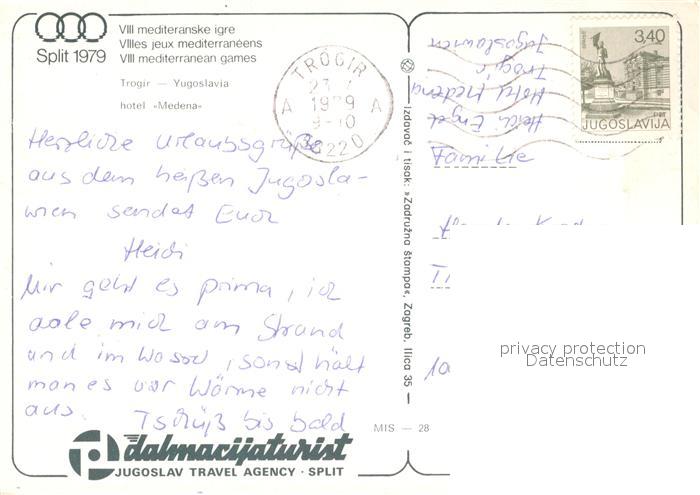 VIII mediteranske igre
VIIIes jeux mediterranéens
VIII mediterranean games
Split 1979
Trogir — Yugoslavia
hotel «Medena»
TROGIR
23.7
A 1979 A
9-10
58220
3,40
JUGOSLAVIJA
Herzliche Urlaubsgrüße
aus dem heißen Jugosla-
wien sendet Euch
Heidi
Mir geht es prima, ich
aale mich am Strand
und im Wasser, sonst hält
man es vor Wärme nicht
aus. Tschüß bis bald
Heidi Engel
Hotel Medena
Trogir
Jugoslawien
Familie
izdavač i tisak: »Zadružna štampa«, Zagreb, Ilica 35
privacy protection
Datenschutz
MIS — 28
dalmacijaturist
JUGOSLAV TRAVEL AGENCY · SPLIT